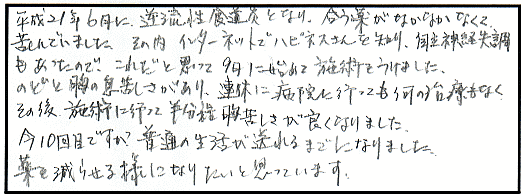 平成21年6月に、逆流性食道炎となり、合う薬がなかなかなくて
苦しんでいました その内 インターネットでハピネスさんを知り、自律神経失調
もあったので、これだと思って9月にはじめて施術をうけました。
のどと胸の息苦しさがあり、連休に病院に行っても何の治療もなく
その後、施術に行って半分程胸苦しさが良くなりました。
今10回目ですが 普通の生活が送れるまでになりました。
薬を減らせる様になりたいと思っています。